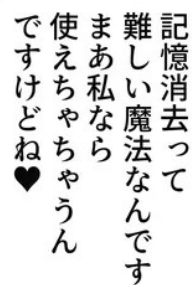 記憶消去って
難しい魔法なんです
まあ私なら
使えちゃちゃうん
ですけどね♥